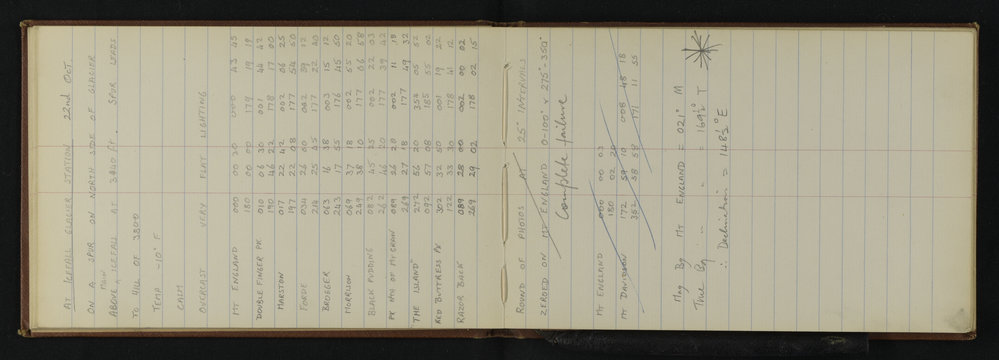 AT ICEFALL GLACIER STATION 22nd OCT
ON A SPUR ON NORTH SIDE OF GLACIER
ABOVE MAIN ICEFALL AT 3440 ft. SPUR LEADS
TO HILL OF 3800
TEMP -10° F
CALM
OVERCAST VERY FLAT LIGHTING
MT ENGLAND 000 00 20 000 43 45
180 00 00 179 19 19
DOUBLE FINGER PK 010 06 30 001 44 42
190 46 22 178 17 00
MARSTON 017 22 42 002 06 25
197 22 08 177 54 50
FORDE 034 26 50 002 39 12
214 25 45 177 22 20
BROEGER 063 16 38 003 15 12
243 17 55 176 45 50
MORRISON 069 37 18 002 65 20
249 38 10 177 06 58
BLACK PUDDING 082 45 25 002 22 03
262 46 20 177 39 42
PK NW OF McCRAW 089 26 20 002 11 19
269 27 18 177 49 32
"THE ISLAND" 272 56 20 354 05 52
092 57 08 185 55 02
RED BUTTRESS PK 302 32 50 001 19 22
122 33 30 178 41 12
RAZOR BACK 089 28 00 002 00 02
269 29 02 178 02 15
ROUND OF PHOTOS AT 25° INTERVALS
ZEROED ON MT ENGLAND 0-100° & 275°-350°
Complete failure
MT ENGLAND 000 00 03
180 02 20
MT DAVIDSON 172 59 10 008 48 18
352 58 58 171 11 55
Mag Bg MT ENGLAND = 021° M
True Bg " " = 169½° T
∴ Declination = 148½° E